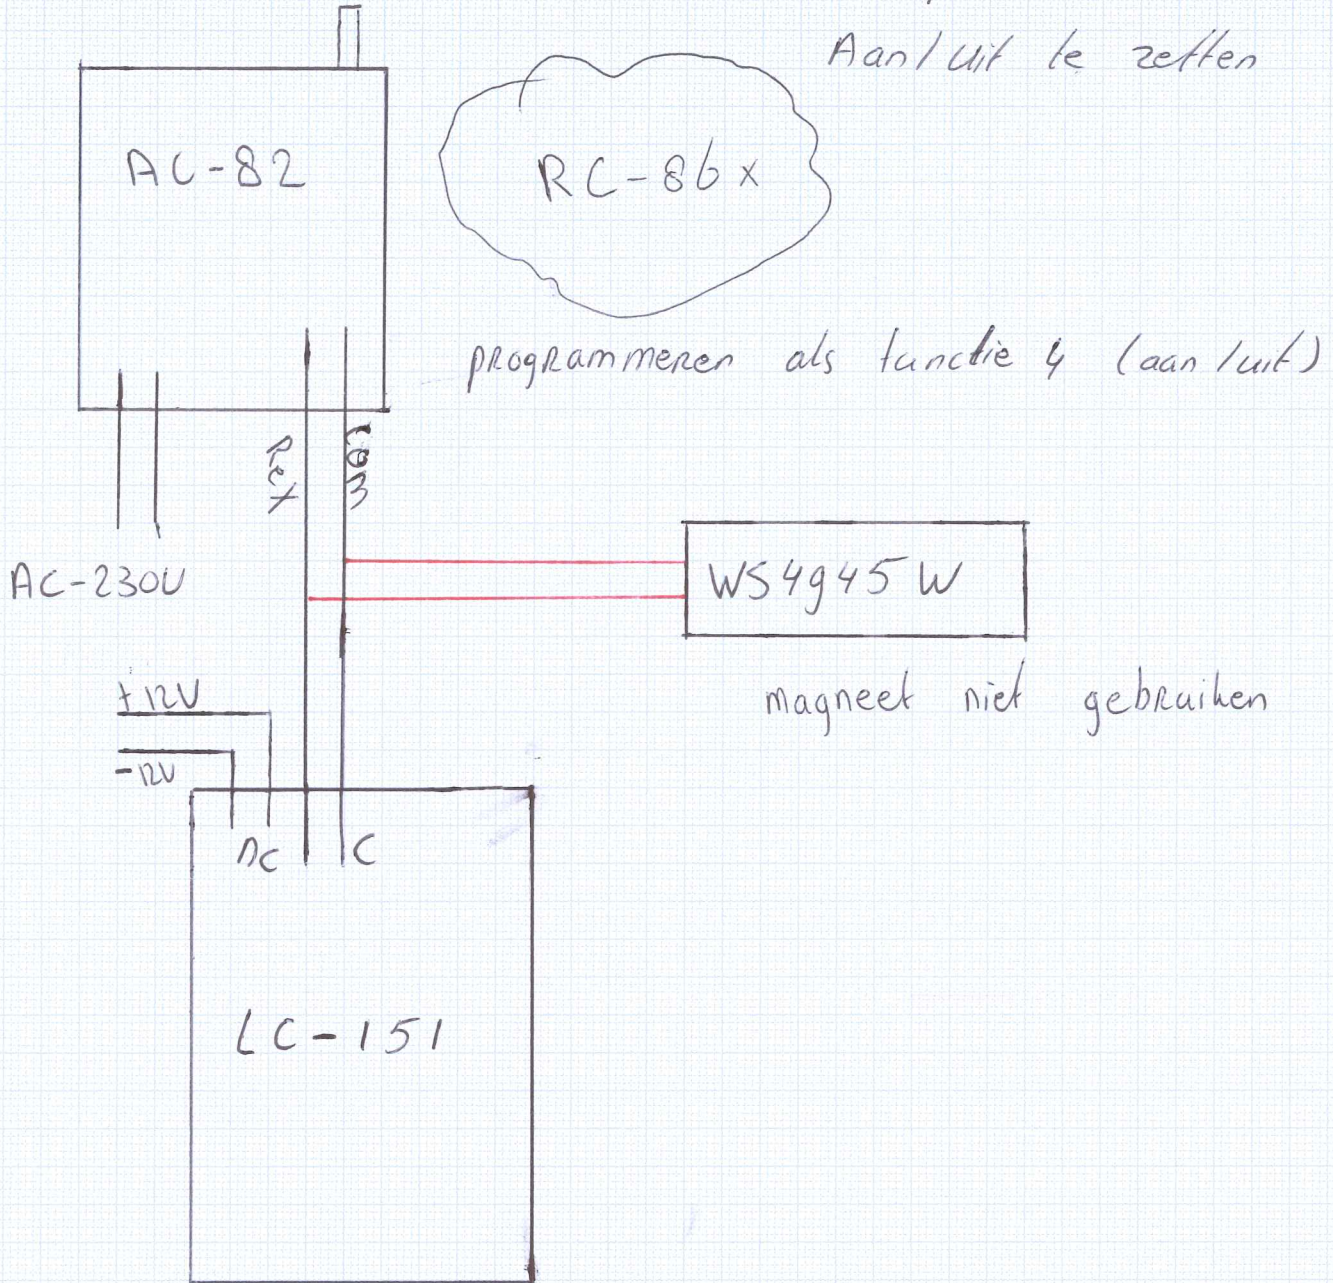 Aan/uit te zetten
AC-82
RC-86x
programmeren als functie 4 (aan/uit)
Rex
Com
AC-230V
WS4945W
+12V
magneet niet gebruiken
-12V
DC
C
LC-151